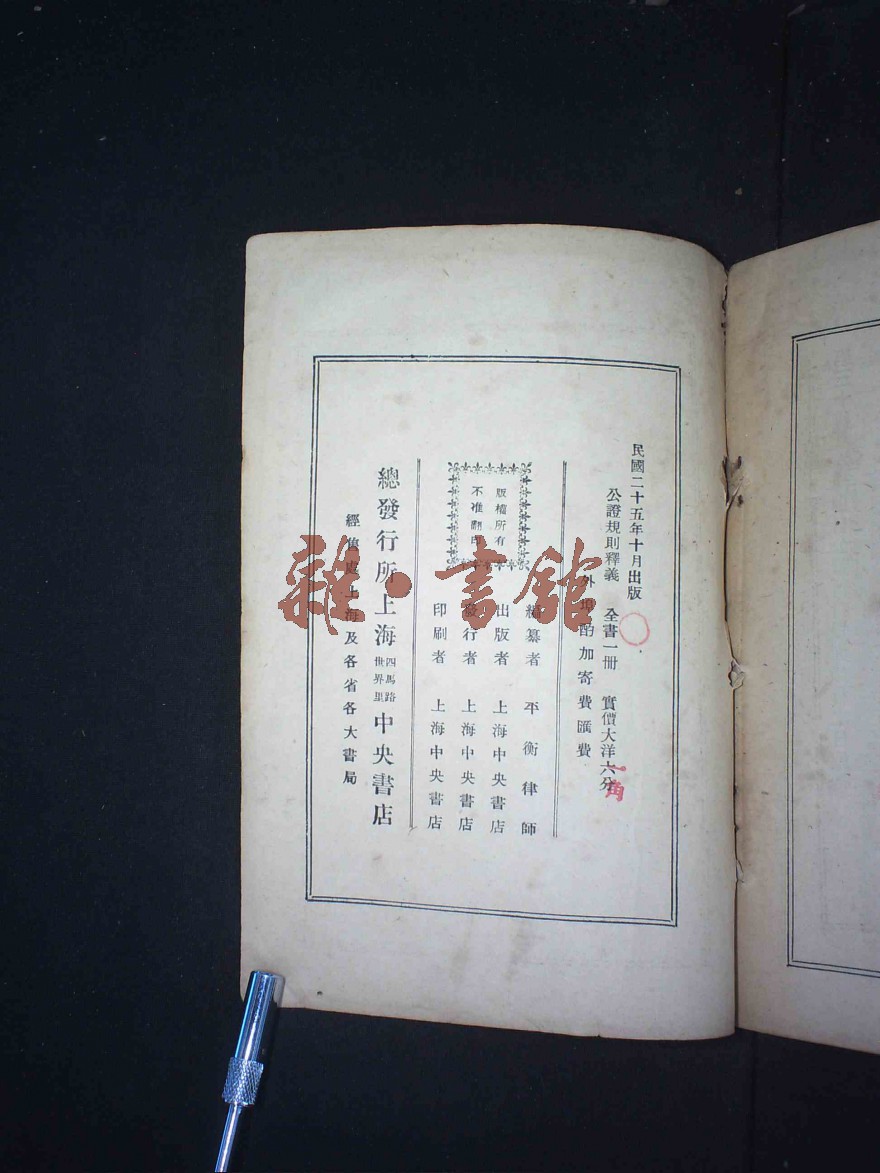 民國二十五年十月出版
公證規則釋義 全書一冊 實價大洋六分
一角
外埠酌加寄費匯費
編纂者 平衡律師
版權所有
不准翻印
出版者 上海中央書店
發行者 上海中央書店
印刷者 上海中央書店
總發行所上海四馬路世界里中央書店
經售處上海及各省各大書局
雜·書館